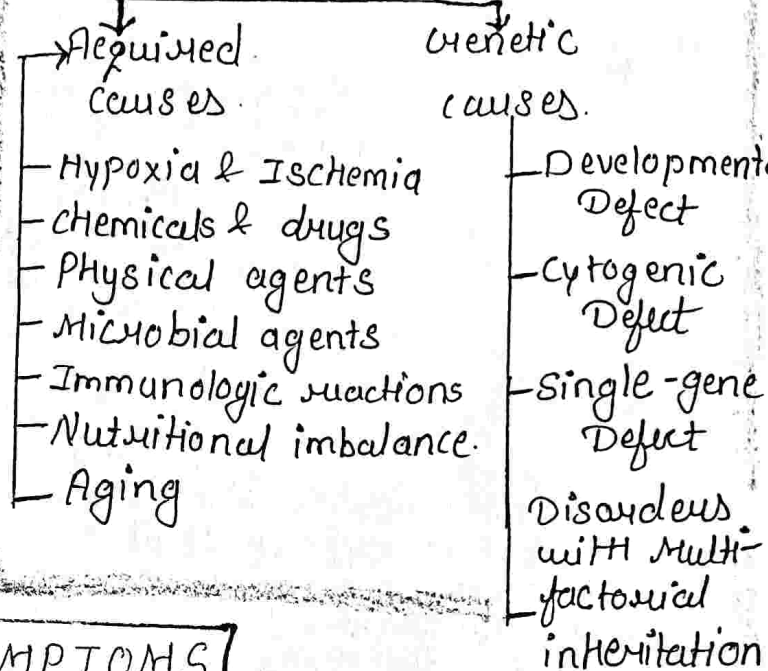 Acquired
causes.
Hypoxia & Ischemia
chemicals & drugs
Physical agents
Microbial agents
Immunologic reactions
Nutritional imbalance.
Aging
Genetic
causes.
Development
Defect
Cytogenic
Defect
Single-gene
Defect
Disorders
with Multi-
factorial
inheritation
MPTOMS